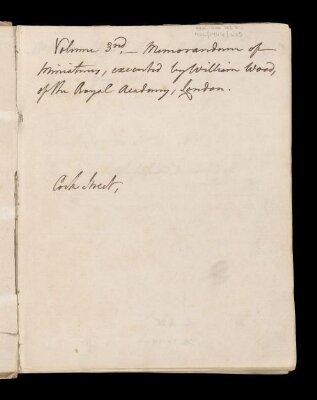 Volume 3rd, — Memorandum of
Miniatures, executed by William Wood,
of the Royal Academy, London.
Cork Street,